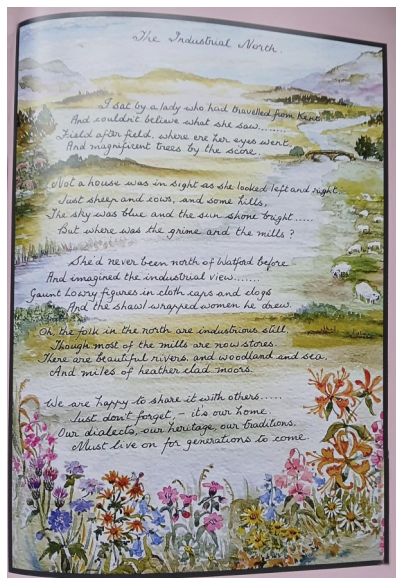 The Industrial North.
I sat by a lady who had travelled from Kent
And couldn't believe what she saw........
Field after field, where ere her eyes went,
And magnificent trees by the score.
Not a house was in sight as she looked left and right,
Just sheep and cows, and some hills,
The sky was blue and the sun shone bright.....
But where was the grime and the mills?
She'd never been north of Watford before
And imagined the industrial view.......
Gaunt Lowry figures in cloth caps and clogs
And the shawl wrapped women he drew.
Oh, the folk in the north are industrious still,
Though most of the mills are now stores.
There are beautiful rivers, and woodland and sea,
And miles of heather clad moors.
We are happy to share it with others.....
Just don't forget, - it's our home.
Our dialects, our heritage, our traditions.
Must live on for generations to come.